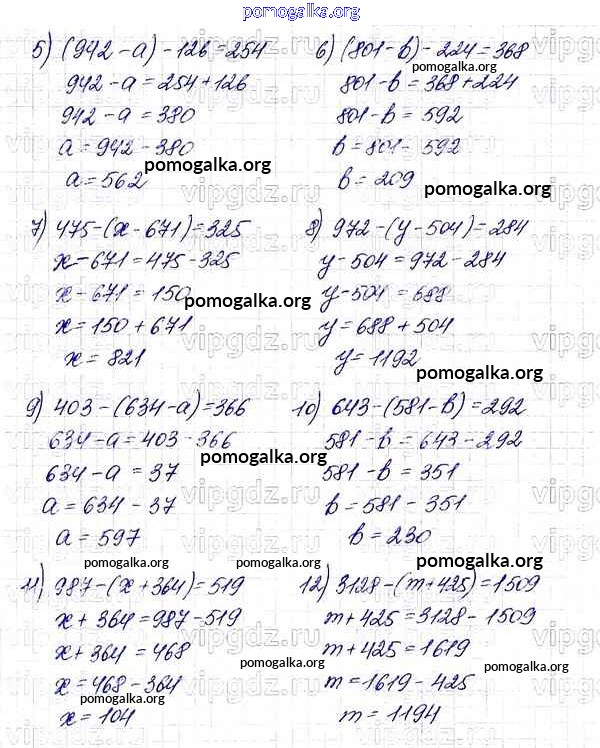 pomogalka.org
5) (942-a)-126=254
942-a=254+126
942-a=380
a=942-380
a=562
6) (801-b)-224=368
801-b=368+224
801-b=592
b=801-592
b=209
pomogalka.org
pomogalka.org
7) 475-(x-671)=325
x-671=475-325
x-671=150
x=150+671
x=821
pomogalka.org
8) 972-(y-504)=284
y-504=972-284
y-504=688
y=688+504
y=1192
pomogalka.org
9) 403-(634-a)=366
634-a=403-366
634-a=37
a=634-37
a=597
pomogalka.org
10) 643-(581-b)=292
581-b=643-292
581-b=351
b=581-351
b=230
pomogalka.org
pomogalka.org
11) 987-(x+364)=519
x+364=987-519
x+364=468
x=468-364
x=104
pomogalka.org
pomogalka.org
12) 3128-(m+425)=1509
m+425=3128-1509
m+425=1619
m=1619-425
m=1194
pomogalka.org
pomogalka.org
vipgdz.ru